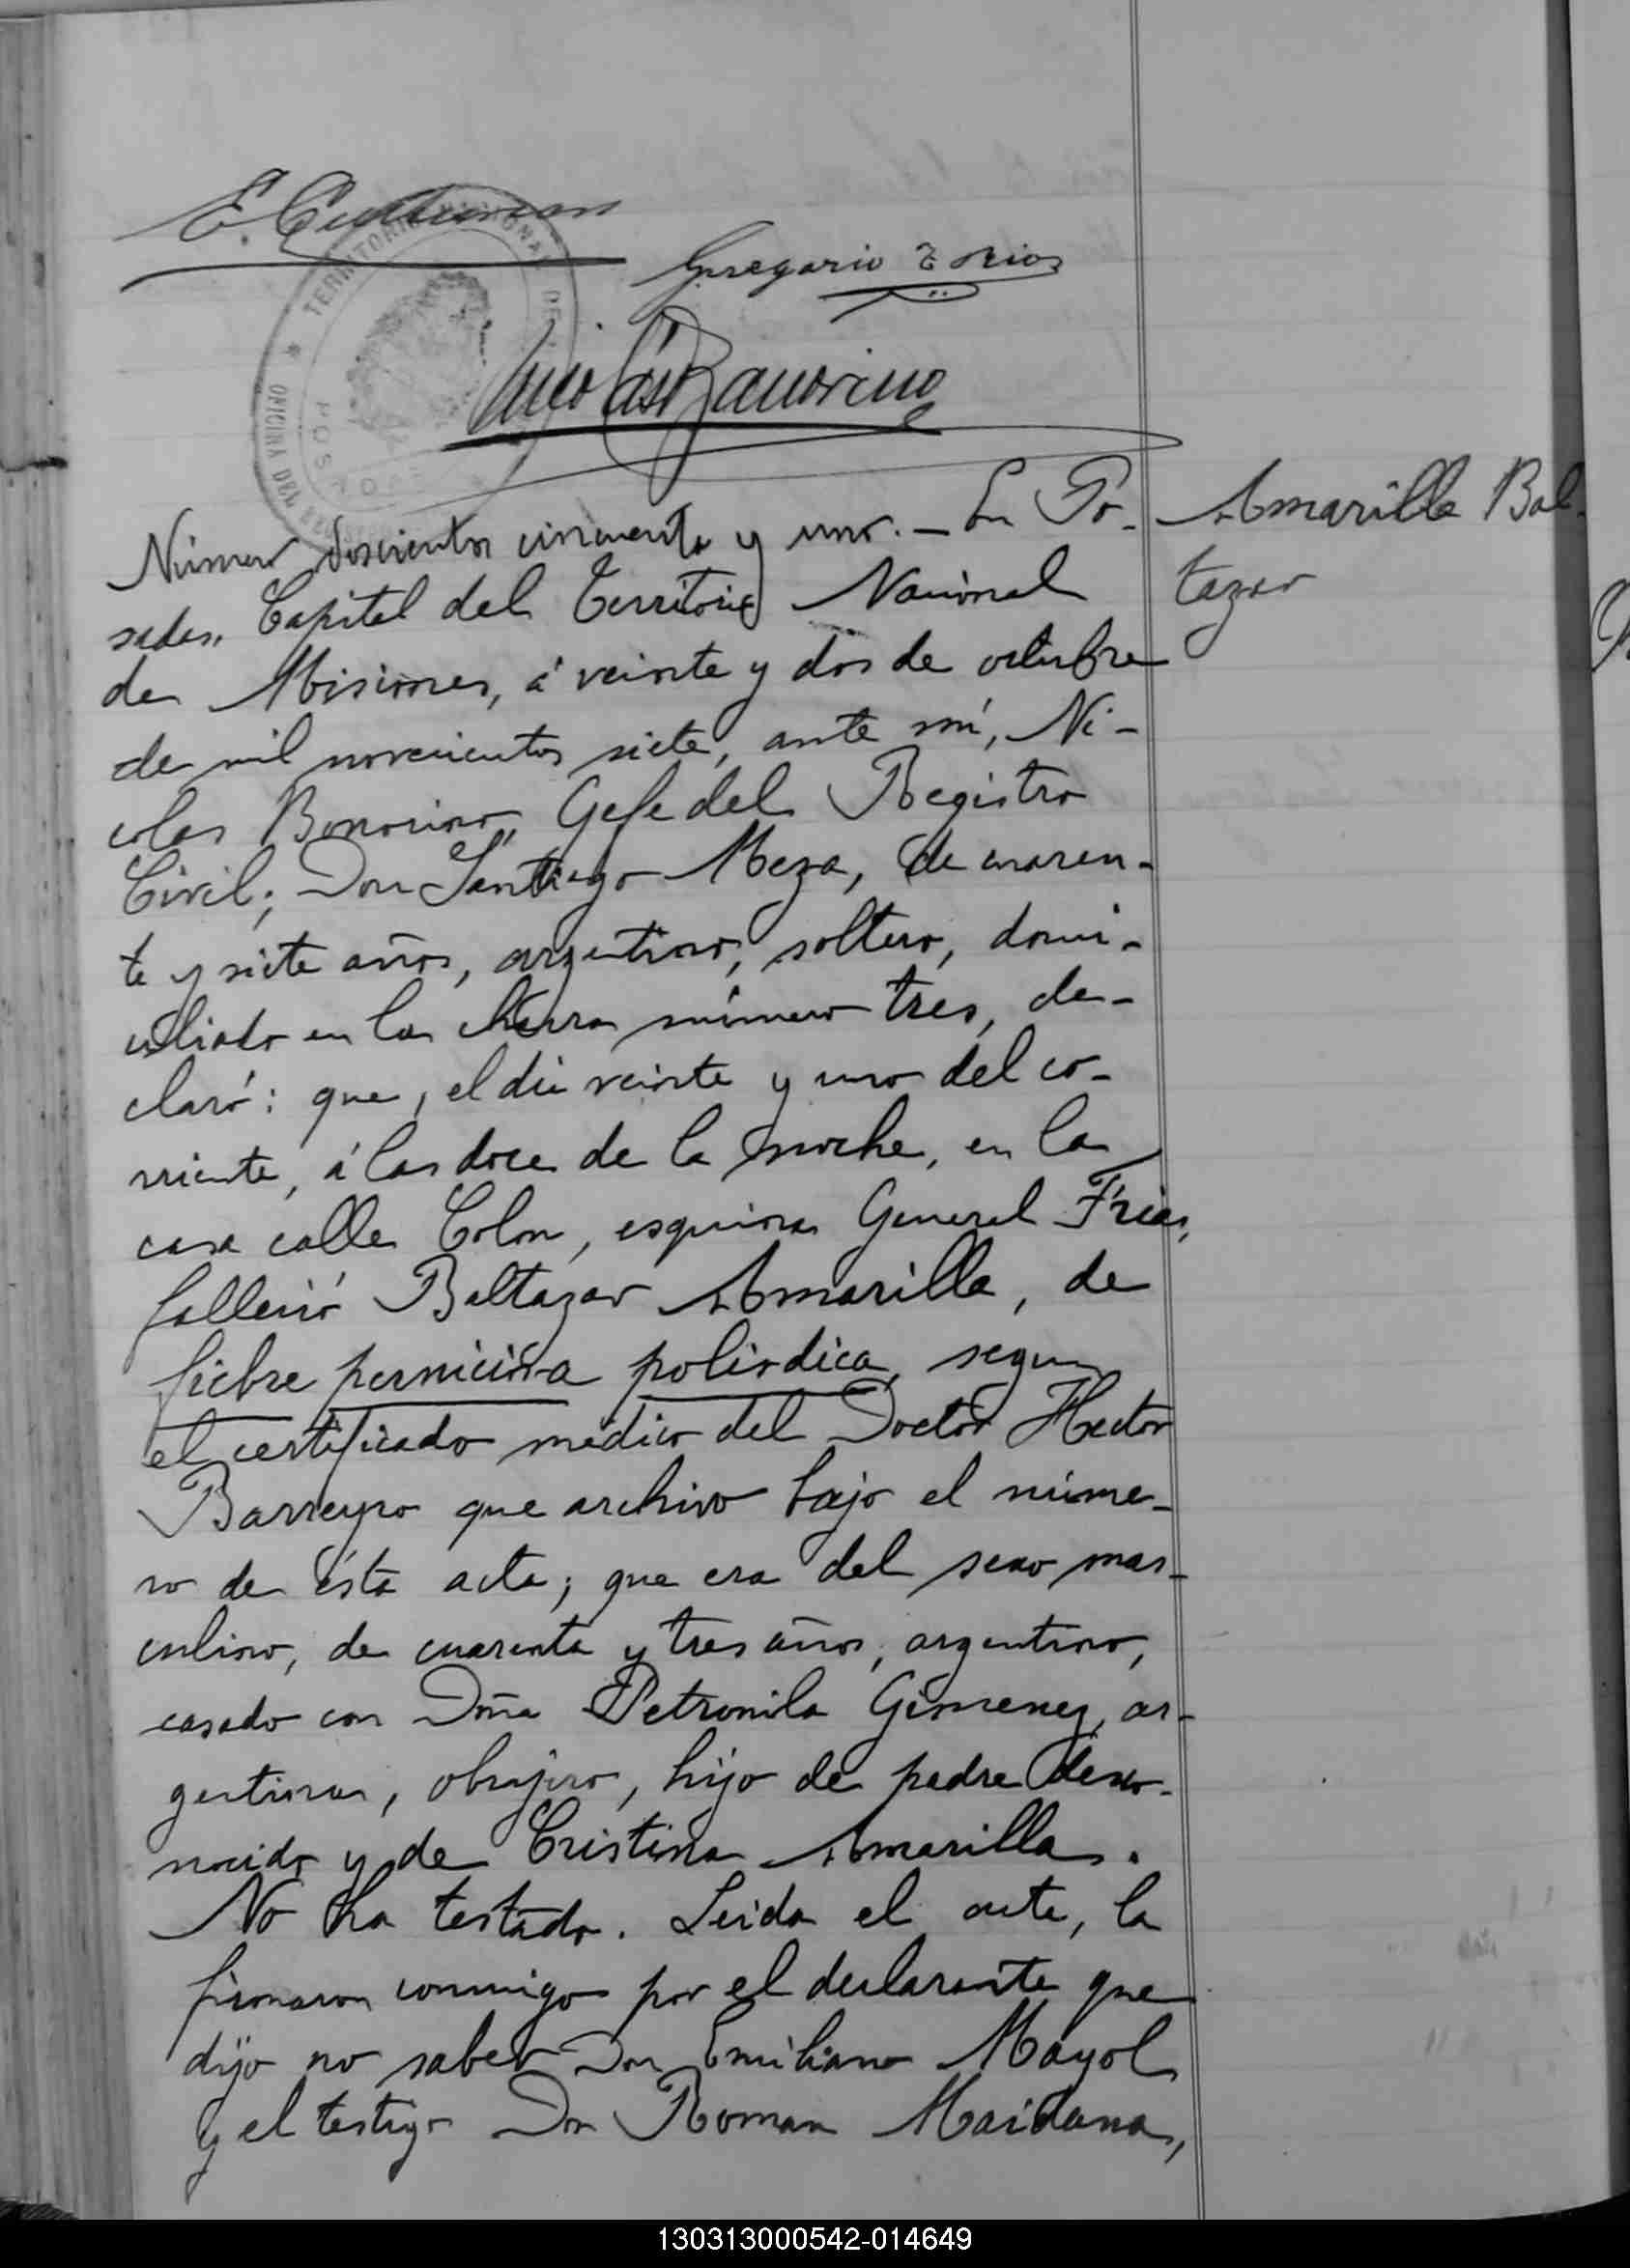 E.
Gregorio
Nicolás Bonorino
TERRITORIO NACIONAL DE
OFICINA DEL
POSADAS
Número doscientos cincuenta y uno. — En Po-
sadas, Capital del Territorio Nacional
de Misiones, á veinte y dos de octubre
de mil novecientos siete, ante mí, Ni-
colas Bonorino, Gefe del Registro
Civil; Don Santiago Meza, de cuaren-
te y siete años, argentino, soltero, domi-
ciliado en la chacra número tres, de-
claró: que, el dia veinte y uno del co-
rriente, á las doce de la noche, en la
casa calle Colon, esquina General Frias,
falleció Baltazar Amarilla, de
fiebre perniciosa polisdica, segun
el certificado médico del Doctor Hector
Barreyro que archivo bajo el núme-
ro de ésta acta; que era del sexo mas-
culino, de cuarenta y tres años, argentino,
casado con Doña Petronila Gimenez, ar-
gentina, obrajero, hijo de padre desco-
nocido y de Cristina Amarilla.
No ha testado. Leida el acta, la
firmaron conmigo por el declarante que
dijo no saber Don Emiliano Mayol
y el testigo Don Roman Maidana,
Amarilla Bal-
tazar
130313000542-014649